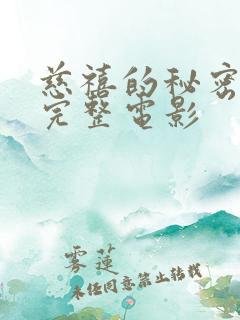 慈禧的秘密
完整电影
雾莲
未经同意禁止转载